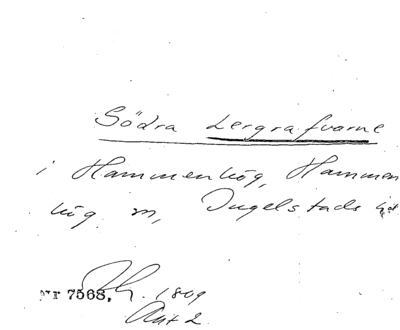 Södra Lergrafvarne
i Hammenhög, Hammen
hög m, Ingelstads hd.
Nr 7568. 1809
Akt 2